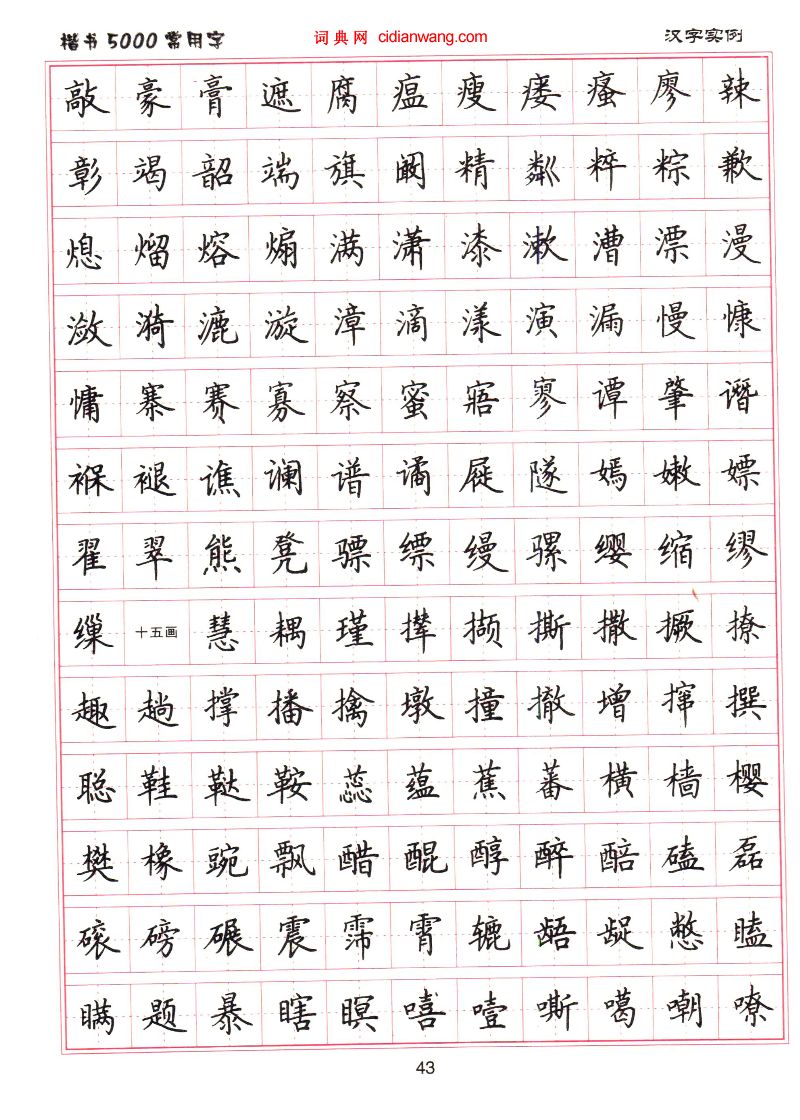 楷书 5000 常用字 词典网 cidianwang.com 汉字实例
敲 豪 膏 遮 腐 瘟 瘦 瘘 瘙 廖 辣
彰 竭 韶 端 旗 阚 精 粼 粹 粽 歉
熄 熘 熔 煽 满 潇 漆 漱 漕 漂 漫
潋 漪 漉 漩 漳 滴 漾 演 漏 慢 慷
慵 寨 赛 寡 察 蜜 寤 寥 谭 肇 谮
褓 褪 谯 谰 谱 谲 屣 隧 嫣 嫩 嫖
翟 翠 熊 凳 骠 缥 缦 骡 缨 缩 缪
缫 十五画 慧 耦 瑾 撵 撷 撕 撒 撅 撩
趣 趟 撑 播 擒 墩 撞 撤 增 撺 撰
聪 鞋 鞑 鞍 蕊 蕴 蕉 蕃 横 樯 樱
樊 橡 豌 飘 醋 醌 醇 醉 醅 磕 磊
磙 磅 碾 震 霈 霄 辘 龉 龊 憋 瞌
瞒 题 暴 瞎 瞑 嘻 噎 嘶 噶 嘲 嘹
43